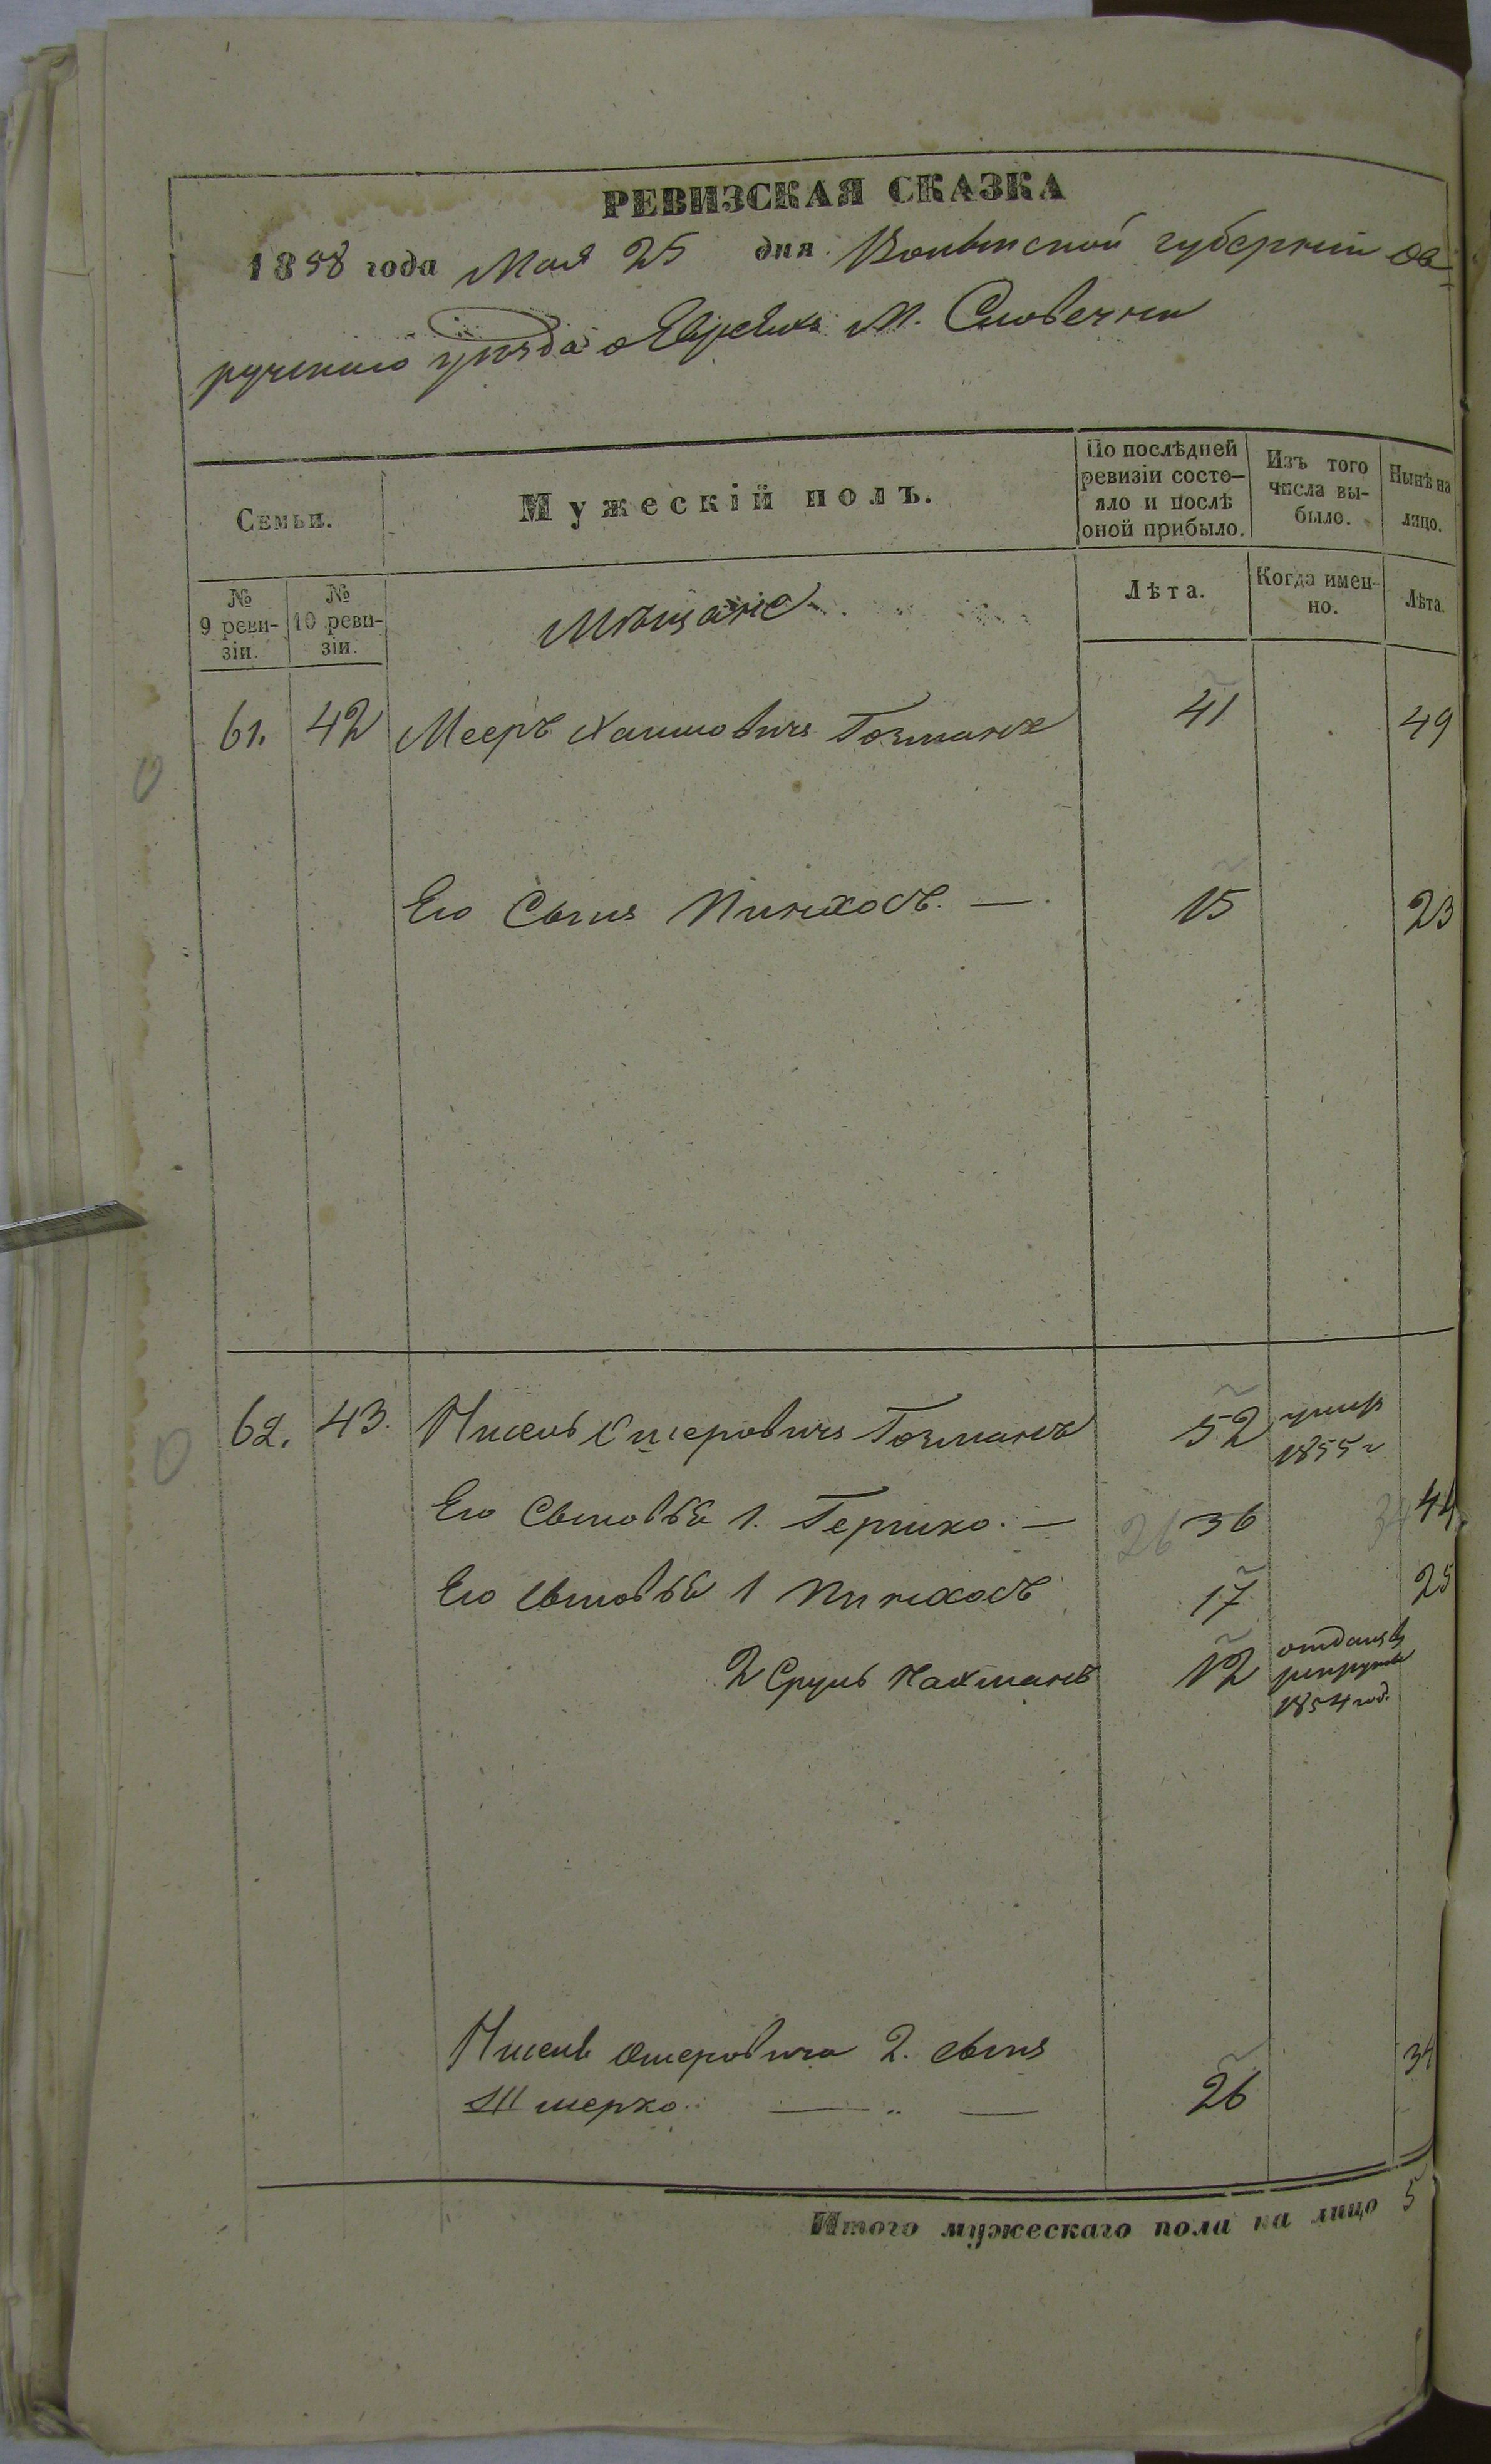 РЕВИЗСКАЯ СКАЗКА
1858 года Мая 25 дня Волынской губернии Ов-
ручскаго уѣзда о Евреяхъ М. Словечни
Семьи.
Мужескій полъ.
По послѣдней ревизіи состо-
яло и послѣ оной прибыло.
Изъ того числа вы-
было.
Нынѣ на лицо.
№ 9 реви-
зіи.
№ 10 реви-
зіи.
Мѣщане
Лѣта.
Когда имен-
но.
Лѣта.
61. 42 Мееръ Хаимовичъ Гозманъ 41 49
Его Сынъ Пинхосъ. — 15 23
62. 43. Нисель Ошеровичъ Гозманъ 52 умир
1855 г
Его Сыновья 1. Гершко. — 26 36 34 44
Его сыновья 1 Пинхосъ 17 25
2 Сруль Нахманъ 12 отданъ въ
рекруты
1854 год.
Нисель Ошеровича 2. сынъ
Шмерко — „ — 26 34
Итого мужескаго пола на лицо 5